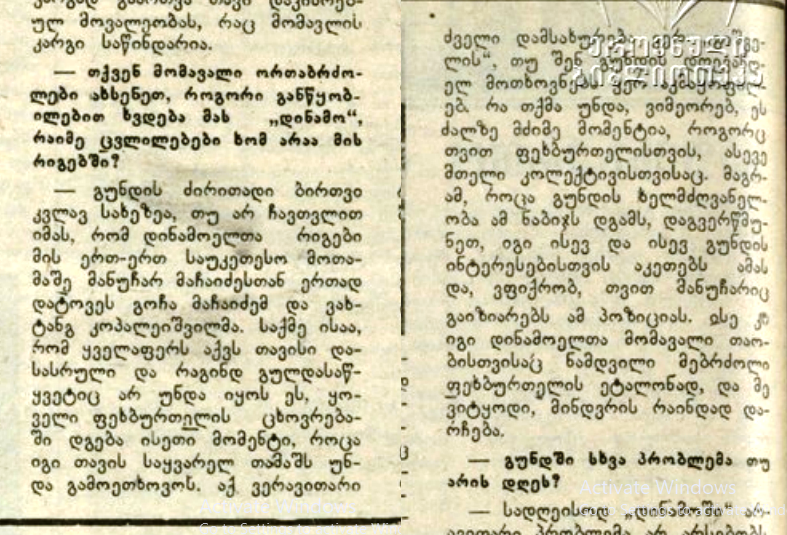 ულ მოვალეობას, რაც მომავლის
კარგი საწინდარია.
— თქვენ მომავალი ორთაბრძო-
ლები ახსენეთ, როგორი განწყობ-
ილებით ხვდება მას „დინამო“,
რაიმე ცვლილებები ხომ არაა მის
რიგებში?
— გუნდის ძირითადი ბირთვი
კვლავ სახეზეა, თუ არ ჩავთვლით
იმას, რომ დინამოელთა რიგები
მის ერთ-ერთ საუკეთესო მოთა-
მაშე მანუჩარ მაჩაიძესთან ერთად
დატოვეს გოჩა მაჩაიძემ და ვახ-
ტანგ კოპალეიშვილმა. საქმე ისაა,
რომ ყველაფერს აქვს თავისი და-
სასრული და რაგინდ გულდასაწ-
ყვეტიც არ უნდა იყოს ეს, ყო-
ველი ფეხბურთელის ცხოვრება-
ში დგება ისეთი მომენტი, როცა
იგი თავის საყვარელ თამაშს უნ-
და გამოეთხოვოს. აქ ვერავითარი
ძველი დამსახურება ვერ
ლის“, თუ შენ გუნდის
ელ მოთხოვნებს ვერ
ებ. რა თქმა უნდა, ვიმეორებ, ეს
ძალზე მძიმე მომენტია, როგორც
თვით ფეხბურთელისთვის, ასევე
მთელი კოლექტივისთვისაც. მაგრ-
ამ, როცა გუნდის ხელმძღვანელ-
ობა ამ ნაბიჯს დგამს, დაგვერწმუ-
ნეთ, იგი ისევ და ისევ გუნდის
ინტერესებისთვის აკეთებს ამას
და, ვფიქრობ, თვით მანუჩარიც
გაიზიარებს ამ პოზიციას. ისე კი
იგი დინამოელთა მომავალი თაო-
ბისთვისაც ნამდვილი მებრძოლი
ფეხბურთელის ეტალონად, და მე
ვიტყოდი, მინდვრის რაინდად და-
რჩება.
— გუნდში სხვა პრობლემა თუ
არის დღეს?
— სადღეისოდ „დინამოში“ არ-
ავითარი პრობლემა არ არსებობს
ეროვნული
ბიბლიოთეკა
Activate Windows